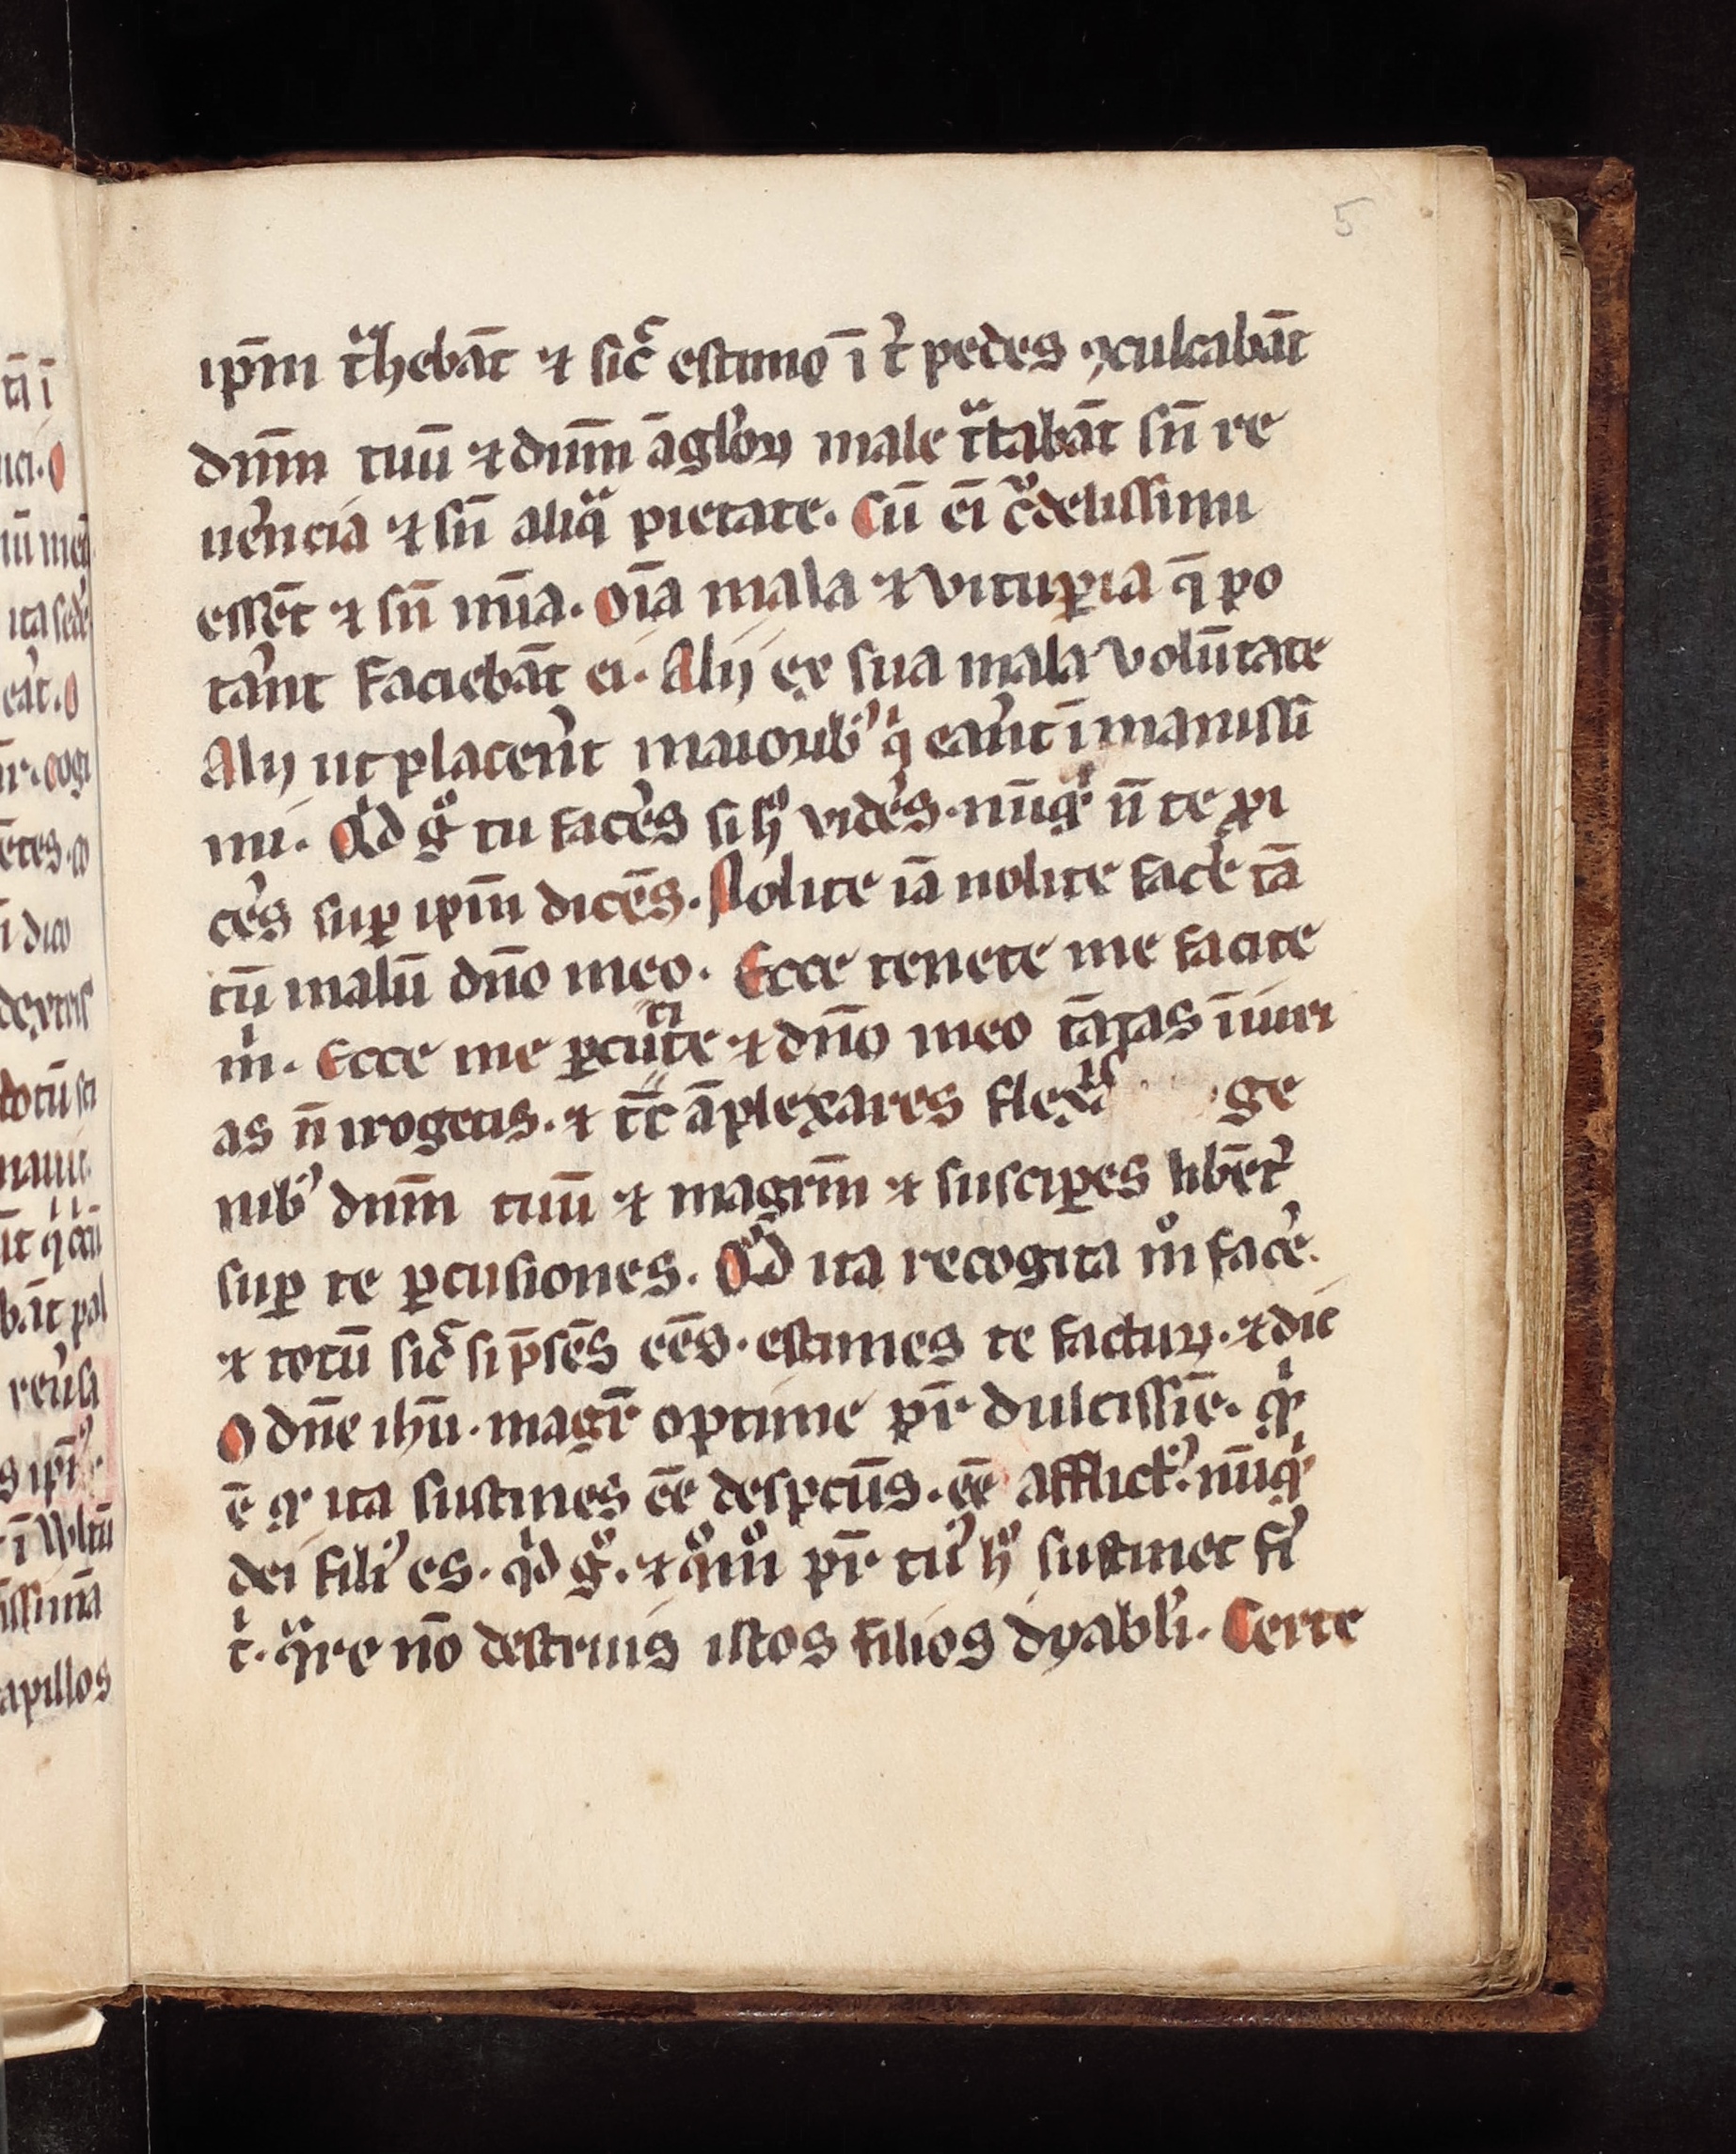 5
ip̄m tͣhebāt ⁊ sic̄ estimo ī t̄ pedes ꝯculcabāt
dn̄m tuū ⁊ dn̄m āgl'oꝝ male tͣtabāt sn̄ re
ue͛ncia ⁊ sn̄ aliqͣ pietate. Cū eī cͮdelissimi
essēt ⁊ sn̄ mīa. Oīa mala ⁊ vituꝑia q̄ po
ta͛nt faciebāt ei. Alij ex sua mala volūtate
Alij ut place͛nt maioribꝰ qͥ ea͛nt īmanissi
mi. Qͥd gͦ tu face͛s si hͦ vide͛s. nūqͥ n̄ te ꝓi
ce͛s suꝑ ip̄m dicēs. Nolite iā nolite face͛ tā
tū malū dn̄o meo. Ecce tenete me facite
mͥ. Ecce me ꝑcutite ⁊ dn̄o meo tātas īiuri
as n̄ irogetis. ⁊ tc̄ āplexares flexis ge
nibꝰ dn̄m tuū ⁊ magr̄m ⁊ susciꝑes libēt͛
suꝑ te ꝑcusiones. Qͦd ita recogita mͦ face͛.
⁊ totū sic̄ si p̄sēs eēs. estimes te facturꝝ. ⁊ dic
O dn̄e ihū. magr̄ optime pr̄ dulcissīe. qͥ
ē qr ita sustines eē despectūs. eē afflictꝰ. nūqͥ
dei filiꝰ es. qͥd gͦ. ⁊ qͦmͦ pr̄ tuꝰ hͦ sustinet fi͛
tͥ. qͣre nō destruis istos filios dyabl'i. Certe